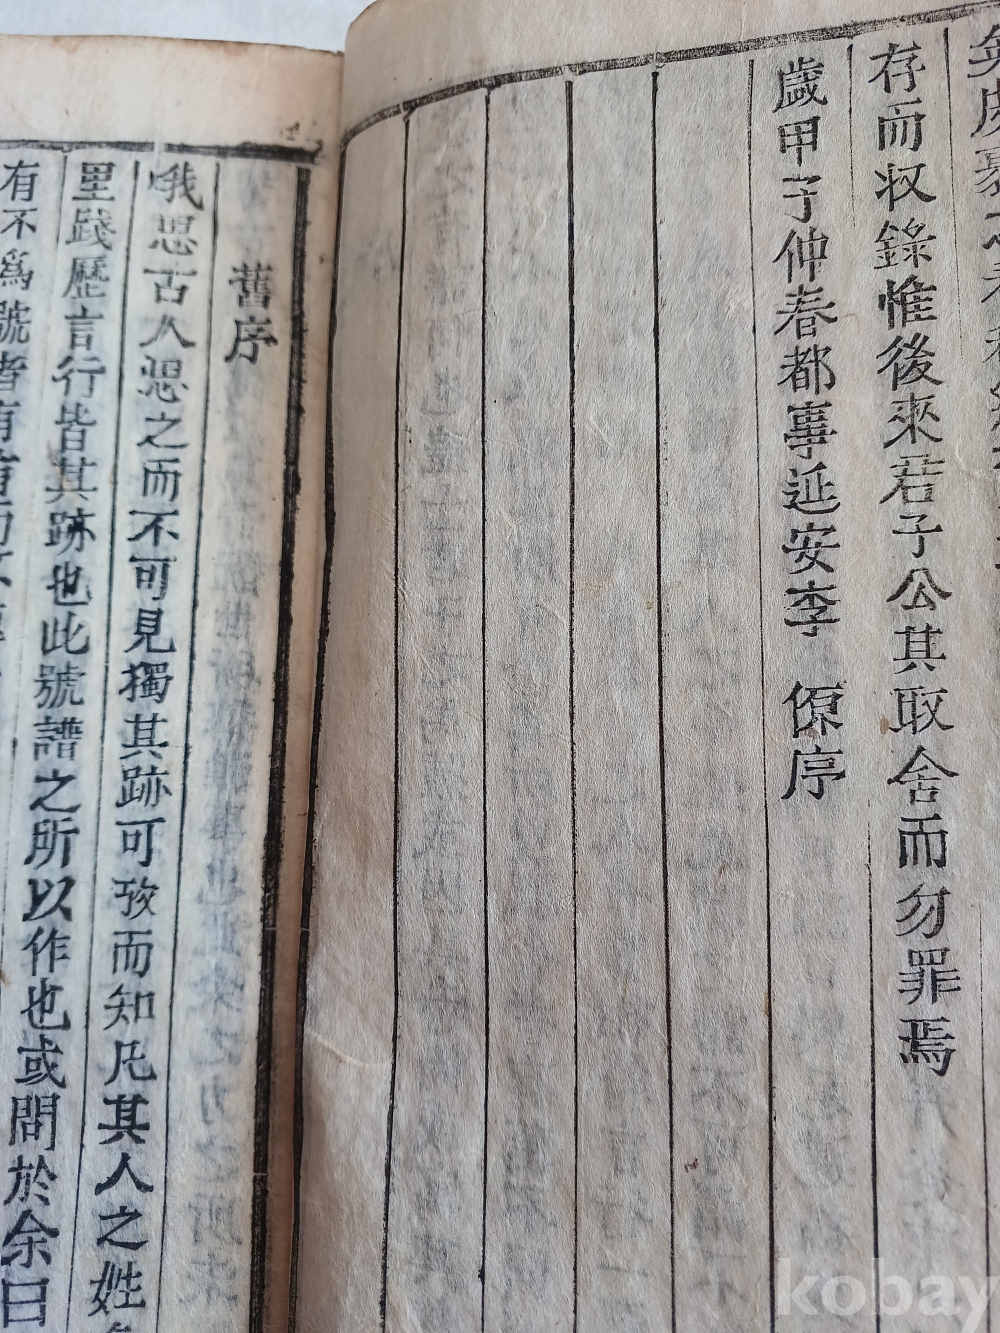 存而収錄惟後來君子公其取舍而勿罪焉
歲甲子仲春都事延安李 傆序
舊序
哦思古人思之而不可見獨其跡可攷而知凡其人之姓
里踐歷言行皆其跡也此號譜之所以作也或問於余曰
有不爲號者有
kobay